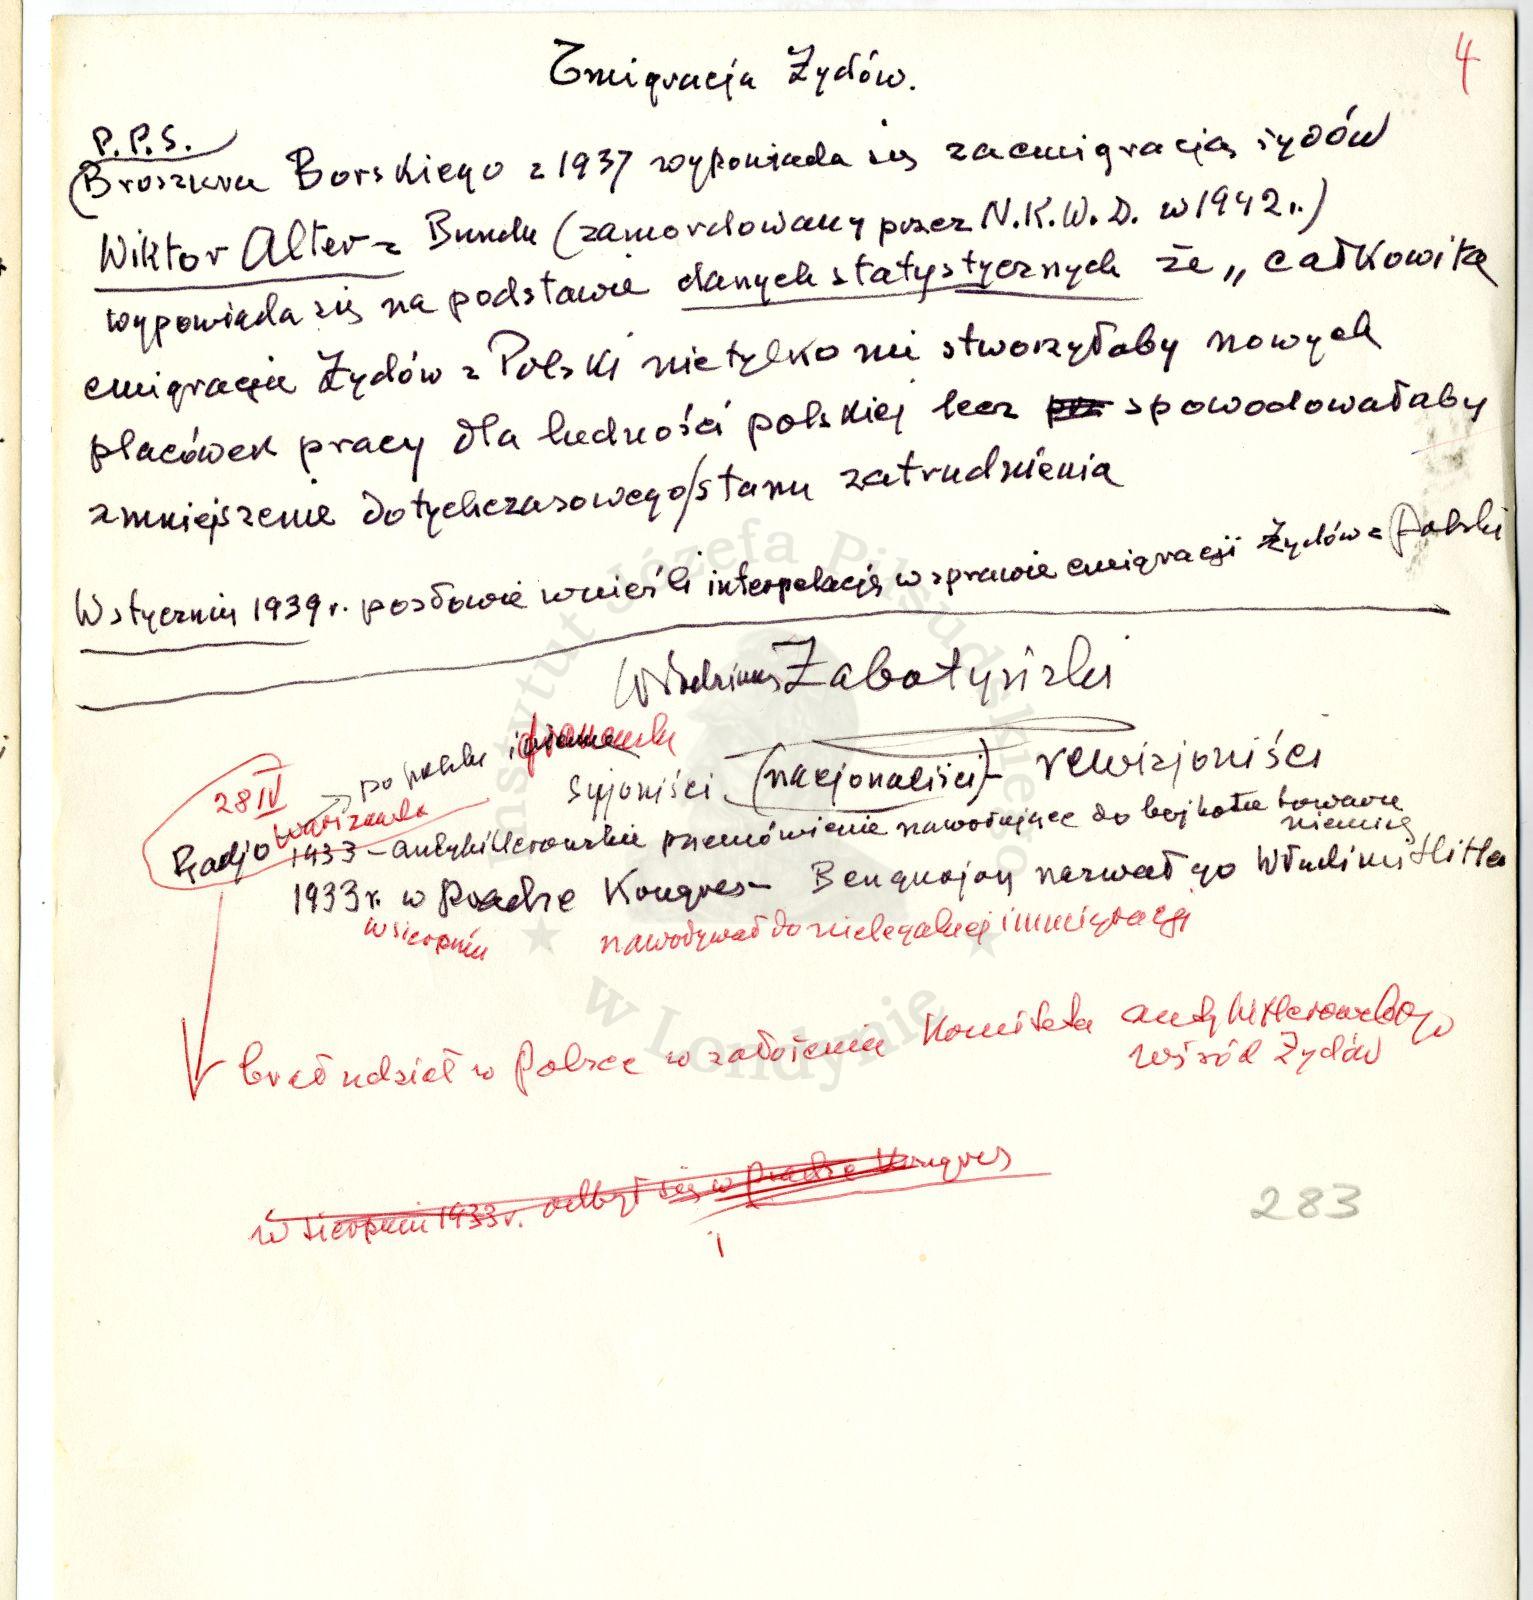 4
Emigracja Żydów.
P.P.S.
(Broszura Borskiego z 1937 wypowiada się za emigracją żydów
Wiktor Alter z Bundu (zamordowany przez N.K.W.D. w 1942 r.)
wypowiada się na podstawie danych statystycznych że „całkowita
emigracja Żydów z Polski nietylko nie stworzyłaby nowych
placówek pracy dla ludności polskiej lecz spowodowałaby
zmniejszenie dotychczasowego stanu zatrudnienia
W styczniu 1939 r. posłowie wnieśli interpelację w sprawie emigracji Żydów z Polski
Włodzimierz Żabotyński
po polsku i francusku
syjoniści (nacjonaliści) – rewizjoniści
28 IV
Warszawa
Radjo 1933 – antyhitlerowskie przemówienie nawołujące do bojkotu towaru
niemiec
1933 r. w Pradze Kongres – Bengurjon nazwał go Włodimir Hitler
w sierpniu
nawoływał do nielegalnej immigracji
brał udział w Polsce w założeniu Komitetu antyhitlerowskiego
wśród Żydów
w sierpniu 1933 r. odbył się w Pradze Kongres
283
Instytut Józefa Piłsudskiego
w Londynie